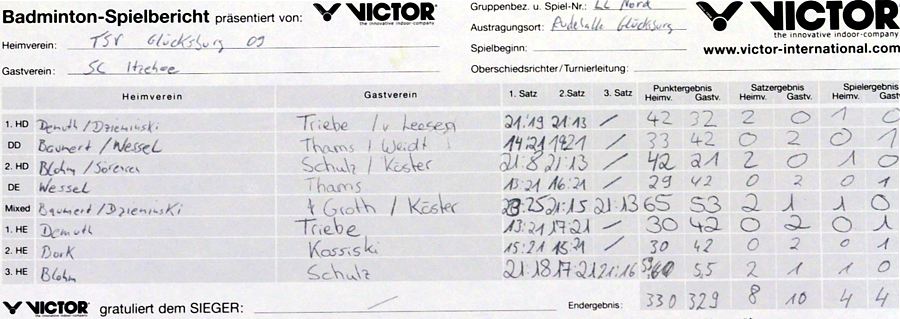 Badminton-Spielbericht präsentiert von: VICTOR the innovative indoor-company
Gruppenbez. u. Spiel-Nr.: LL Nord
VICTOR
the innovative indoor-company
Heimverein: TSV Glücksburg 09
Austragungsort: Rudehalle Glücksburg
Spielbeginn:
www.victor-international.com
Gastverein: SC Itzehoe
Oberschiedsrichter/Turnierleitung:
Heimverein Gastverein 1. Satz 2. Satz 3. Satz Punktergebnis Satzergebnis Spielergebnis
Heimv. Gastv. Heimv. Gastv. Heimv. Gastv.
1. HD Demuth/Dzieminski Triebe / v Leesen 21:19 21:13 / 42 32 2 0 1 0
DD Baumert/Wessel Thams / Weidt 14:21 19:21 / 33 42 0 2 0 1
2. HD Blohm/Sörensen Schulz / Köster 21:8 21:13 / 42 21 2 0 1 0
DE Wessel Thams 13:21 16:21 / 29 42 0 2 0 1
Mixed Baumert/Dzieminski Groth / Köster 23:25 21:15 21:13 65 53 2 1 1 0
1. HE Demuth Triebe 13:21 17:21 / 30 42 0 2 0 1
2. HE Dork Kossiski 15:21 15:21 / 30 42 0 2 0 1
3. HE Blohm Schulz 21:18 17:21 21:16 55 2 1 1 0
VICTOR the innovative indoor-company gratuliert dem SIEGER: / Endergebnis: 330 329 8 10 4 4